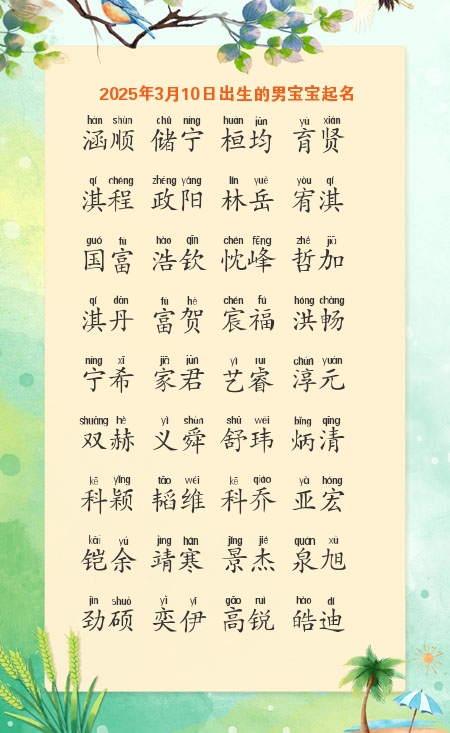 2025年3月10日出生的男宝宝起名
hán shùn chǔ níng huán jūn yù xián
涵顺 储宁 桓均 育贤
qí chéng zhèng yáng lín yuè yòu qí
淇程 政阳 林岳 宥淇
guó fù hào qīn chén fēng zhé jiā
国富 浩钦 忱峰 哲加
qí dān fù hè chén fú hóng chàng
淇丹 富贺 宸福 洪畅
níng xī jiā jūn yì ruì chún yuán
宁希 家君 艺睿 淳元
shuāng hè yì shùn shū wěi bǐng qīng
双赫 义舜 舒玮 炳清
kē yǐng tāo wéi kē qiáo yà hóng
科颖 韬维 科乔 亚宏
kǎi yú jìng hán jǐng jié quán xù
铠余 靖寒 景杰 泉旭
jìn shuò yì yī gāo ruì hào dí
劲硕 奕伊 高锐 皓迪